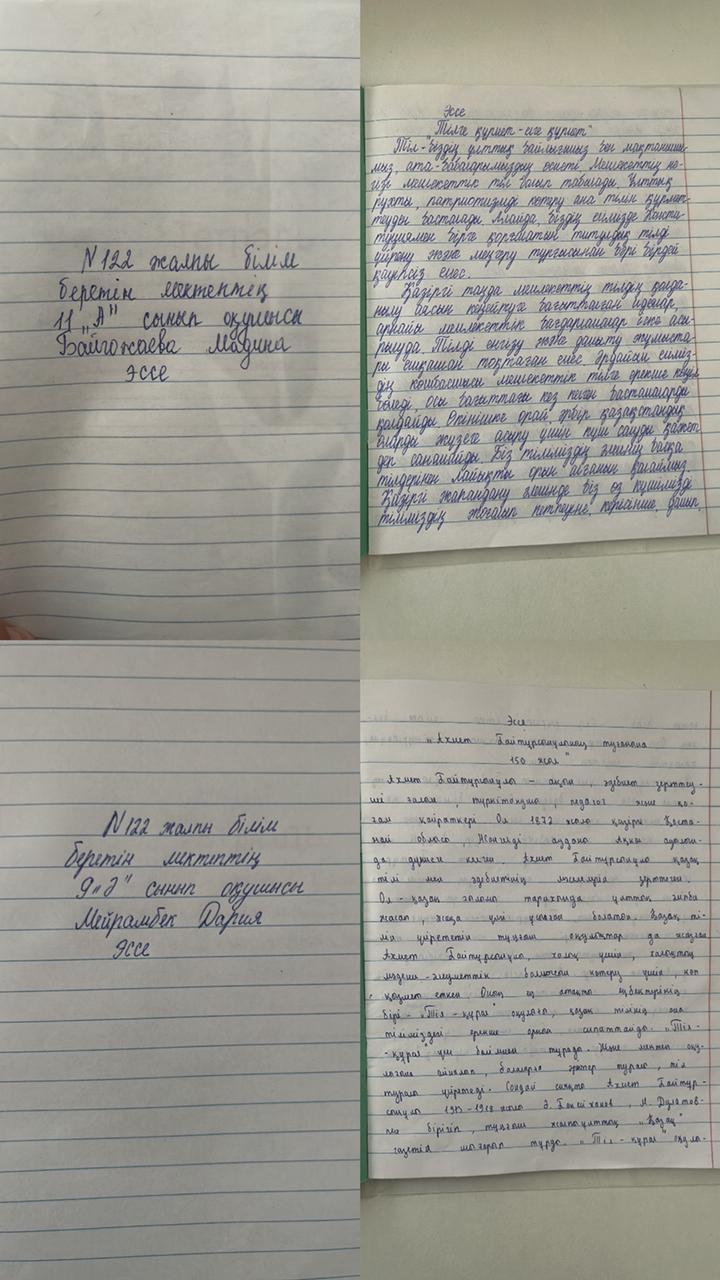 N122 жалпы білім
беретін мектептің
11 „А" сынып оқушысы
Байгожаева Мадина
Эссе
Эссе
"Тілге құрмет - елге құрмет"
Тіл - біздің ұлттық байлығымыз бен мақтанышы-
мыз, ата-бабаларымыздың өсиеті. Мемлекеттің не-
гізі мемлекеттік тіл болып табылады. Ұлттық
рухты, патриотизмді көтеру ана тілін құрмет-
теуден басталады. Алайда, біздің елімізде Консти-
туциямен бірге қорғалатын титулдық тілді
үйрену және меңгеру тұрғысынан бәрі бірдей
қауіпсіз емес.
Қазіргі таңда мемлекеттің тілдің қолда-
нылу аясын кеңейтуге бағытталған идеялар,
арнайы мемлекеттік бағдарламалар іске асы-
рылуда. Тілді енгізу және дамыту жұмыста-
ры ешқашан тоқтаған емес. Әрдайым еліміз-
дің көшбасшысы мемлекеттік тілге ерекше көңіл
бөледі, осы бағыттағы кез келген бастамаларды
қолдайды. Өкінішке орай, әрбір қазақстандық
оларды жүзеге асыру үшін күш салуды қажет
деп санамайды. Біз тіліміздің әлемнің басқа
тілдерінен лайықты орын алғанын қалаймыз.
Қазіргі жаһандану әлемінде біз өз күшімізді
тіліміздің жоғалып кетпеуіне, керісінше, дамып,
N122 жалпы білім
беретін мектептің
9 „Ә" сынып оқушысы
Мейрамбек Дария
Эссе
Эссе
„Ахмет Байтұрсынұлының туғанына
150 жыл"
Ахмет Байтұрсынұлы - ақын, әдебиет зерттеу-
ші ғалым, түркітанушы, педагог және қо-
ғам қайраткері. Ол 1872 жылы қазіргі Қоста-
най облысы, Жангелді ауданы Ақкөл ауылын-
да дүниеге келген. Ахмет Байтұрсынұлы қазақ
тілі мен әдебиетінің мәселелерін зерттеген.
Ол - қазақ ғылымы тарихында ұлттық әліпби
жасап, жаңа үлгі ұсынған болатын. Қазақ ті-
лін үйрететін тұңғыш оқулықтар да жазған
Ахмет Байтұрсынұлы, халық үшін, халықтың
мәдени-әлеуметтік болмысын көтеру үшін, көп
қызмет еткен. Оның ең атақты еңбектерінің
бірі - „Тіл - құрал" оқулығы, қазақ тілінің ана
тіліміздегі ерекше орнын сипаттайды. „Тіл-
- құрал" үш бөлімнен тұрады. Және мектеп оқу-
лығына айналып, балаларға әріптер туралы, тіл
туралы үйретеді. Сондай-ақ Ахмет Байтұр-
сынұлы 1913-1918 жылы Ә. Бөкейханов, М. Дулатов-
пен бірігіп, тұңғыш жалпыұлттық „Қазақ"
газетін шығарып тұрды. „Тіл - құрал" оқулы-